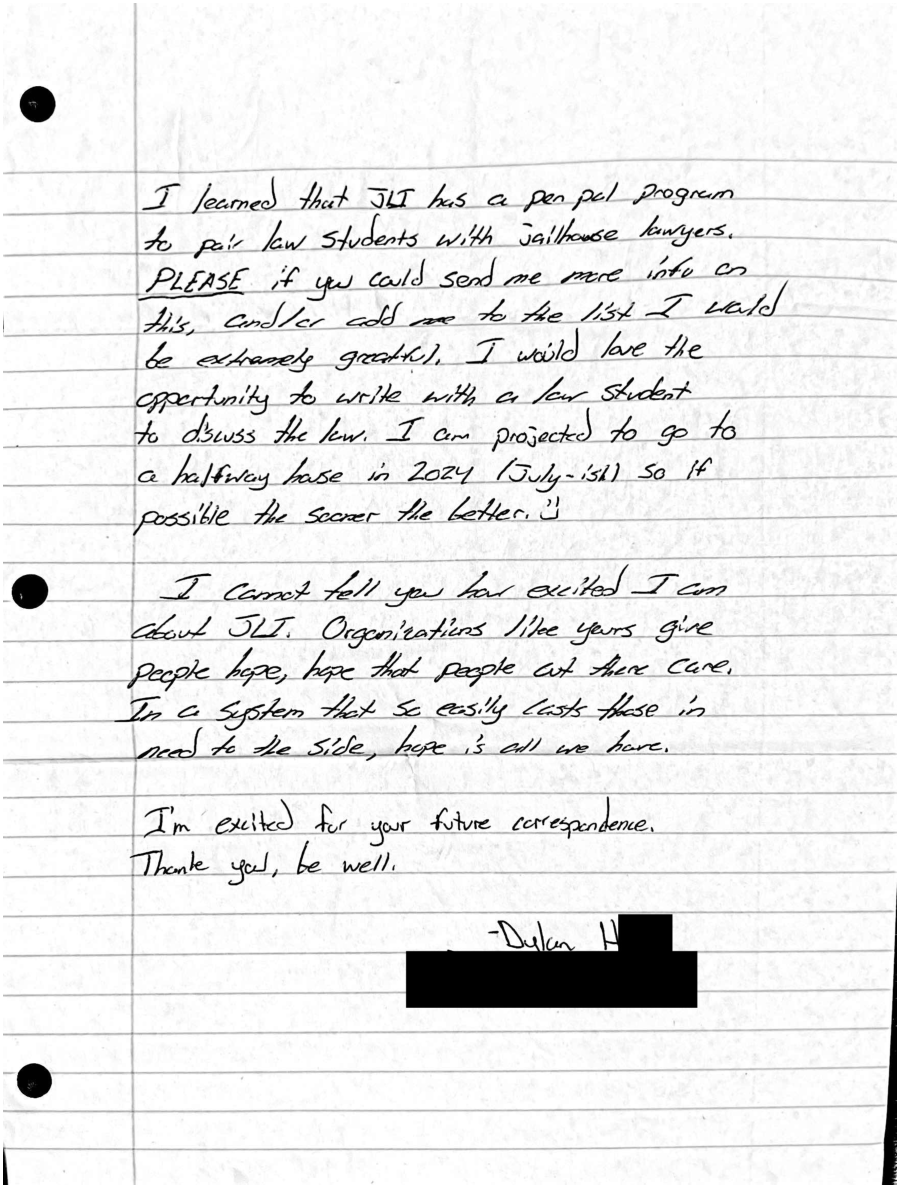 I learned that JLI has a pen pal program
to pair law students with jailhouse lawyers.
PLEASE if you could send me more info on
this, and/or add me to the list I would
be extremely greatful. I would love the
opportunity to write with a law student
to discuss the law. I am projected to go to
a halfway house in 2024 (July-ish) so if
possible the sooner the better.
I cannot tell you how excited I am
about JLI. Organizations like yours give
people hope, hope that people out there care.
In a system that so easily casts those in
need to the side, hope is all we have.
I'm excited for your future correspondence.
Thank you, be well.
-Dylan H